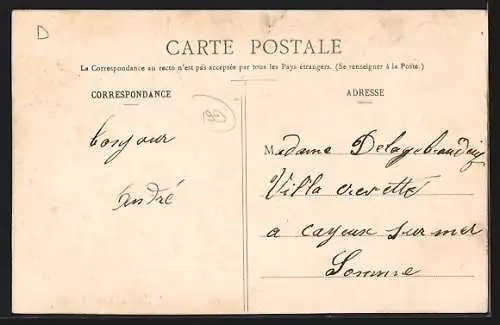 D
CARTE POSTALE
La Correspondance au recto n'est pas acceptée par tous les Pays étrangers. (Se renseigner à la Poste.)
CORRESPONDANCE
ADRESSE
80
bonjour
André
Madame
Villa crevette
a cayeux sur mer
Somme